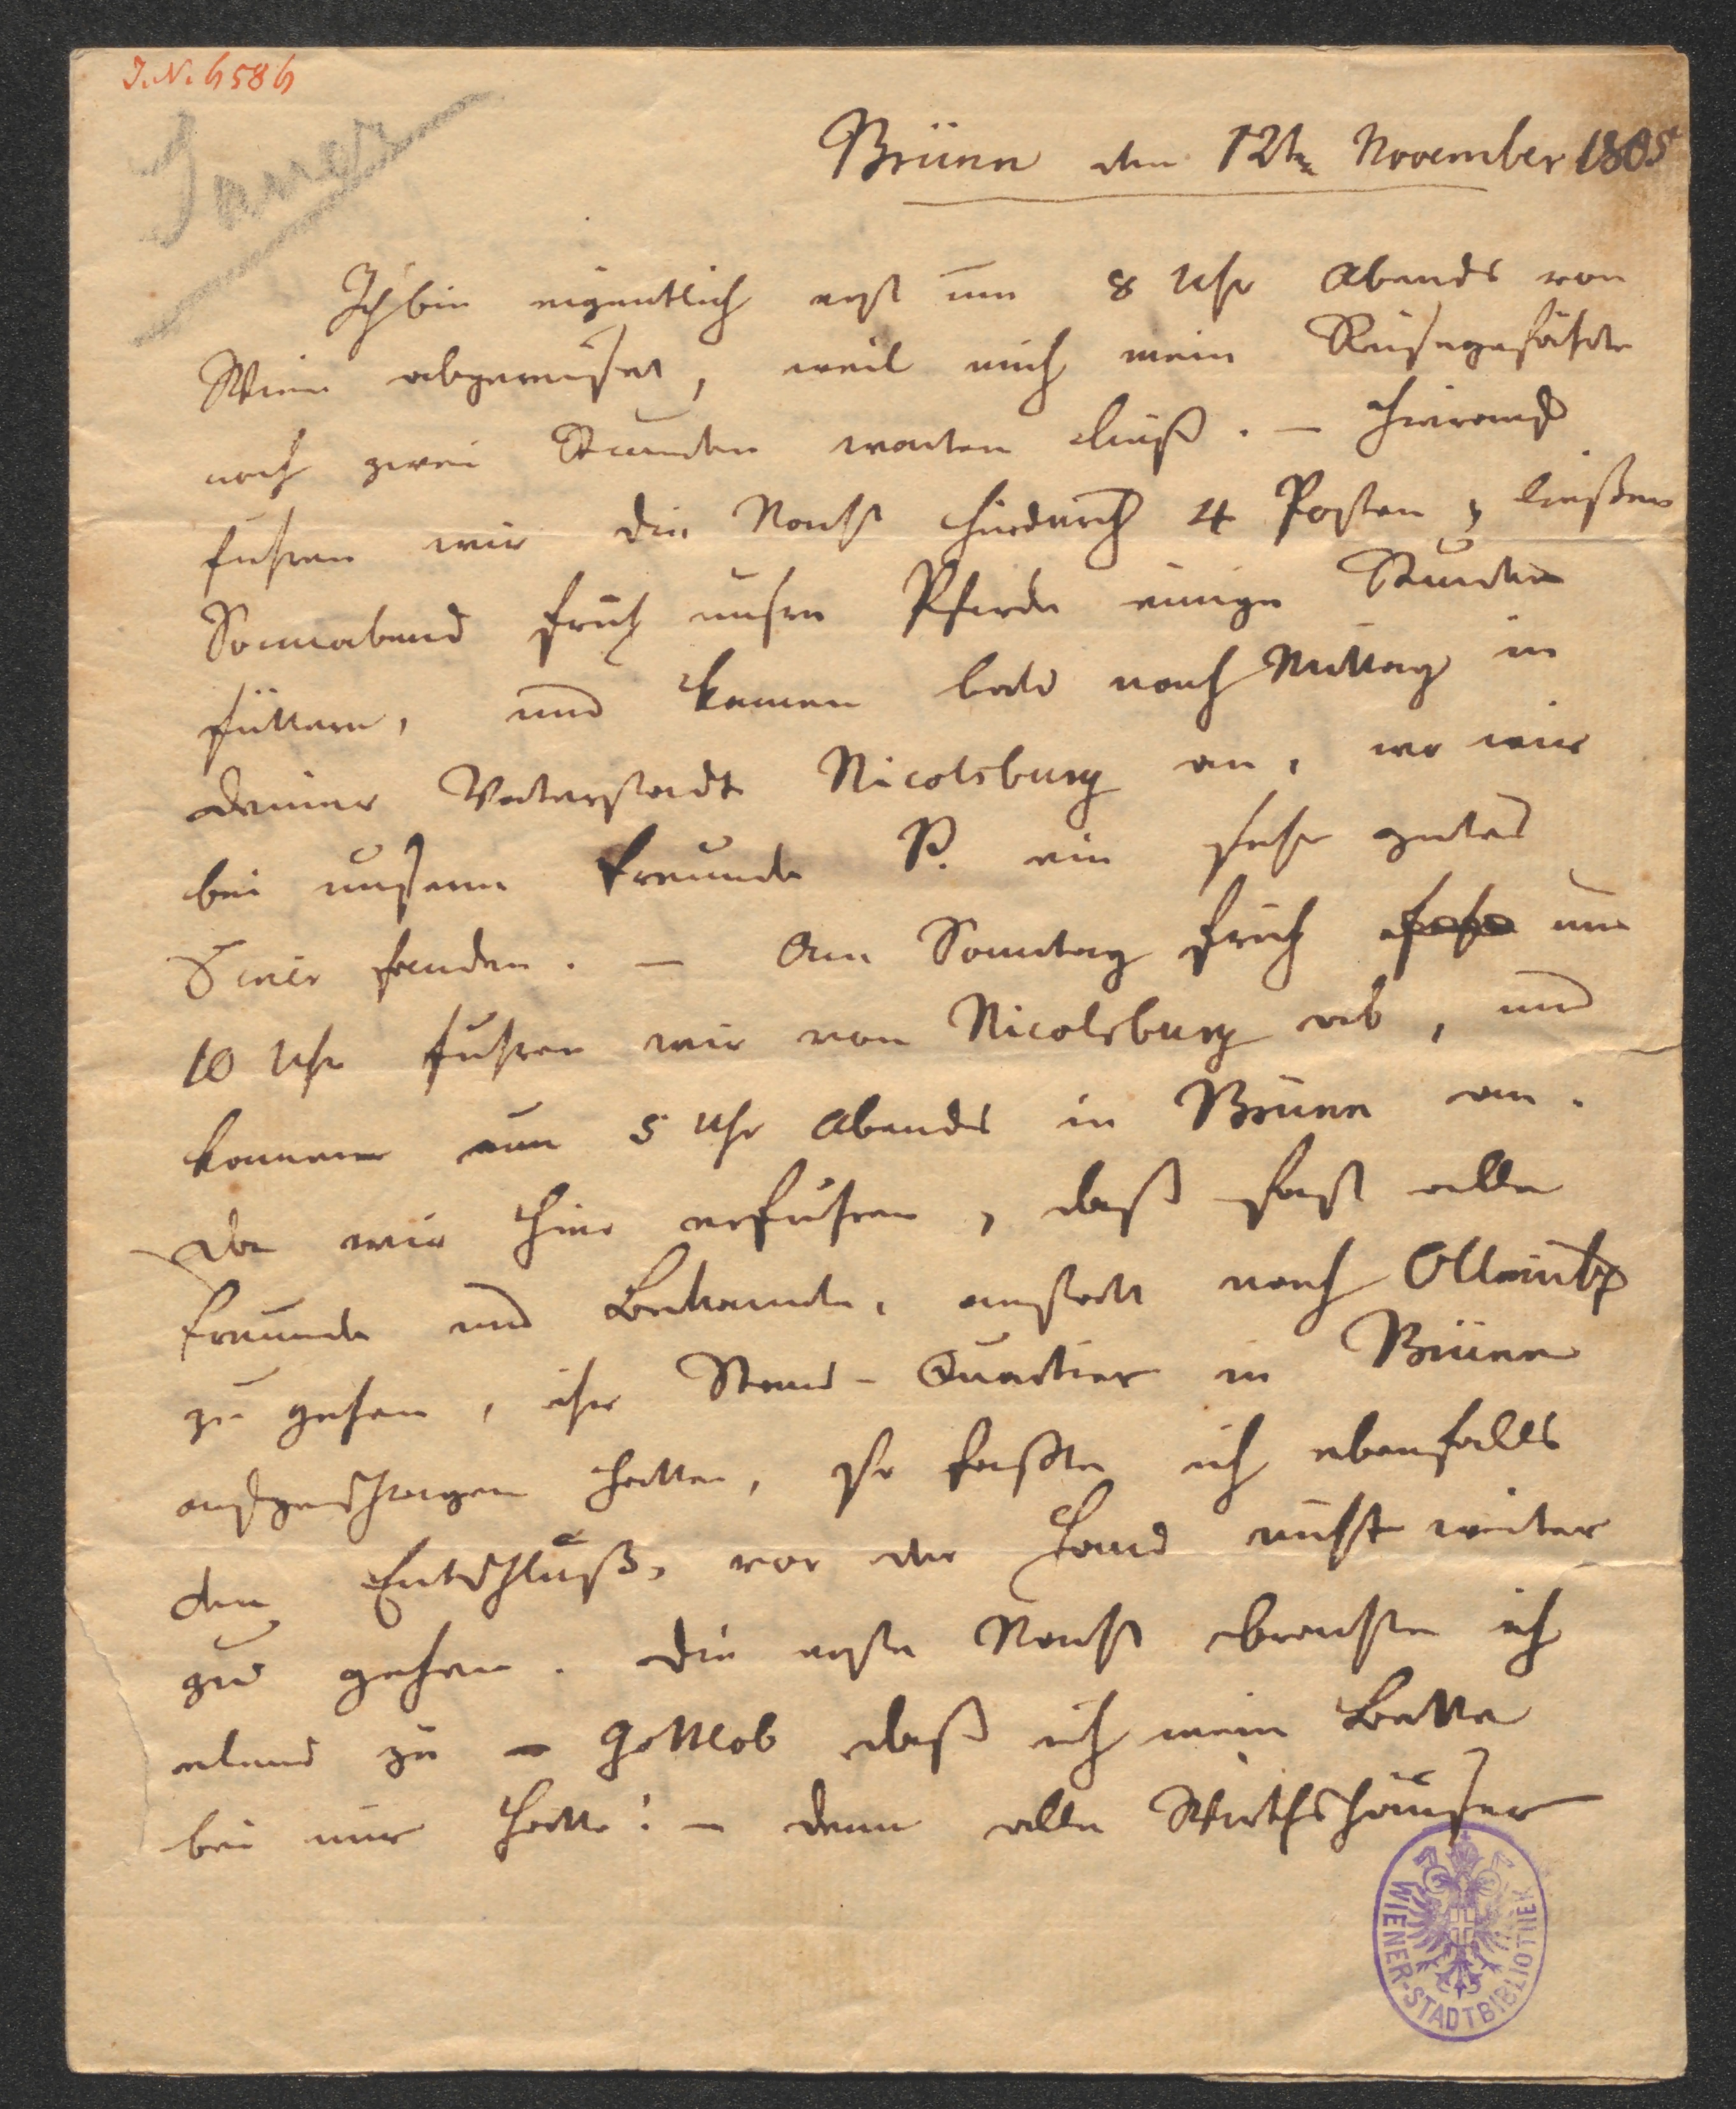 J.N. 4584
Brünn den 12ten November 1805
Ich bin eigentlich erst um 8 Uhr Abends von
Wien abgereiset, weil mich mein Reisegefährte
noch zwei Stunden warten ließ. – Hierauf
fuhren wir die Nacht hindurch 4 Posten, ließen
Sonnabend früh unsre Pferde einige Stunden
füttern, und kamen bald nach Mittag in
deiner Vaterstadt Nicolsburg an, wo wir
bei unserm Freunde P. ein sehr gutes
Diner fanden. – Am Sonntag früh um
10 Uhr fuhren wir von Nicolsburg ab, und
kamen um 5 Uhr Abends in Brünn an.
Da wir hier erfuhren, daß fast alle
Freunde und Bekannte, anstatt nach Ollmütz
zu gehen, ihr Stand-Quartier in Brünn
aufgeschlagen hatten, so faßte ich ebenfalls
den Entschluß, vor der Hand nicht weiter
zu gehen. Die erste Nacht brachte ich
elend zu – Gottlob daß ich mein Bette
bei mir hatte! – denn alle Wirthshäuser
WIENER-STADTBIBLIOTHEK